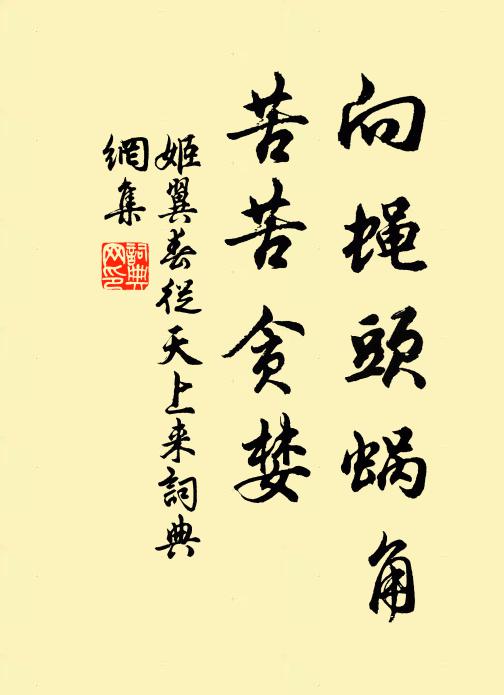 向蝇頭蜗角
苦苦贪婪
姬翼春從天上来詞典
網集
詞典网印